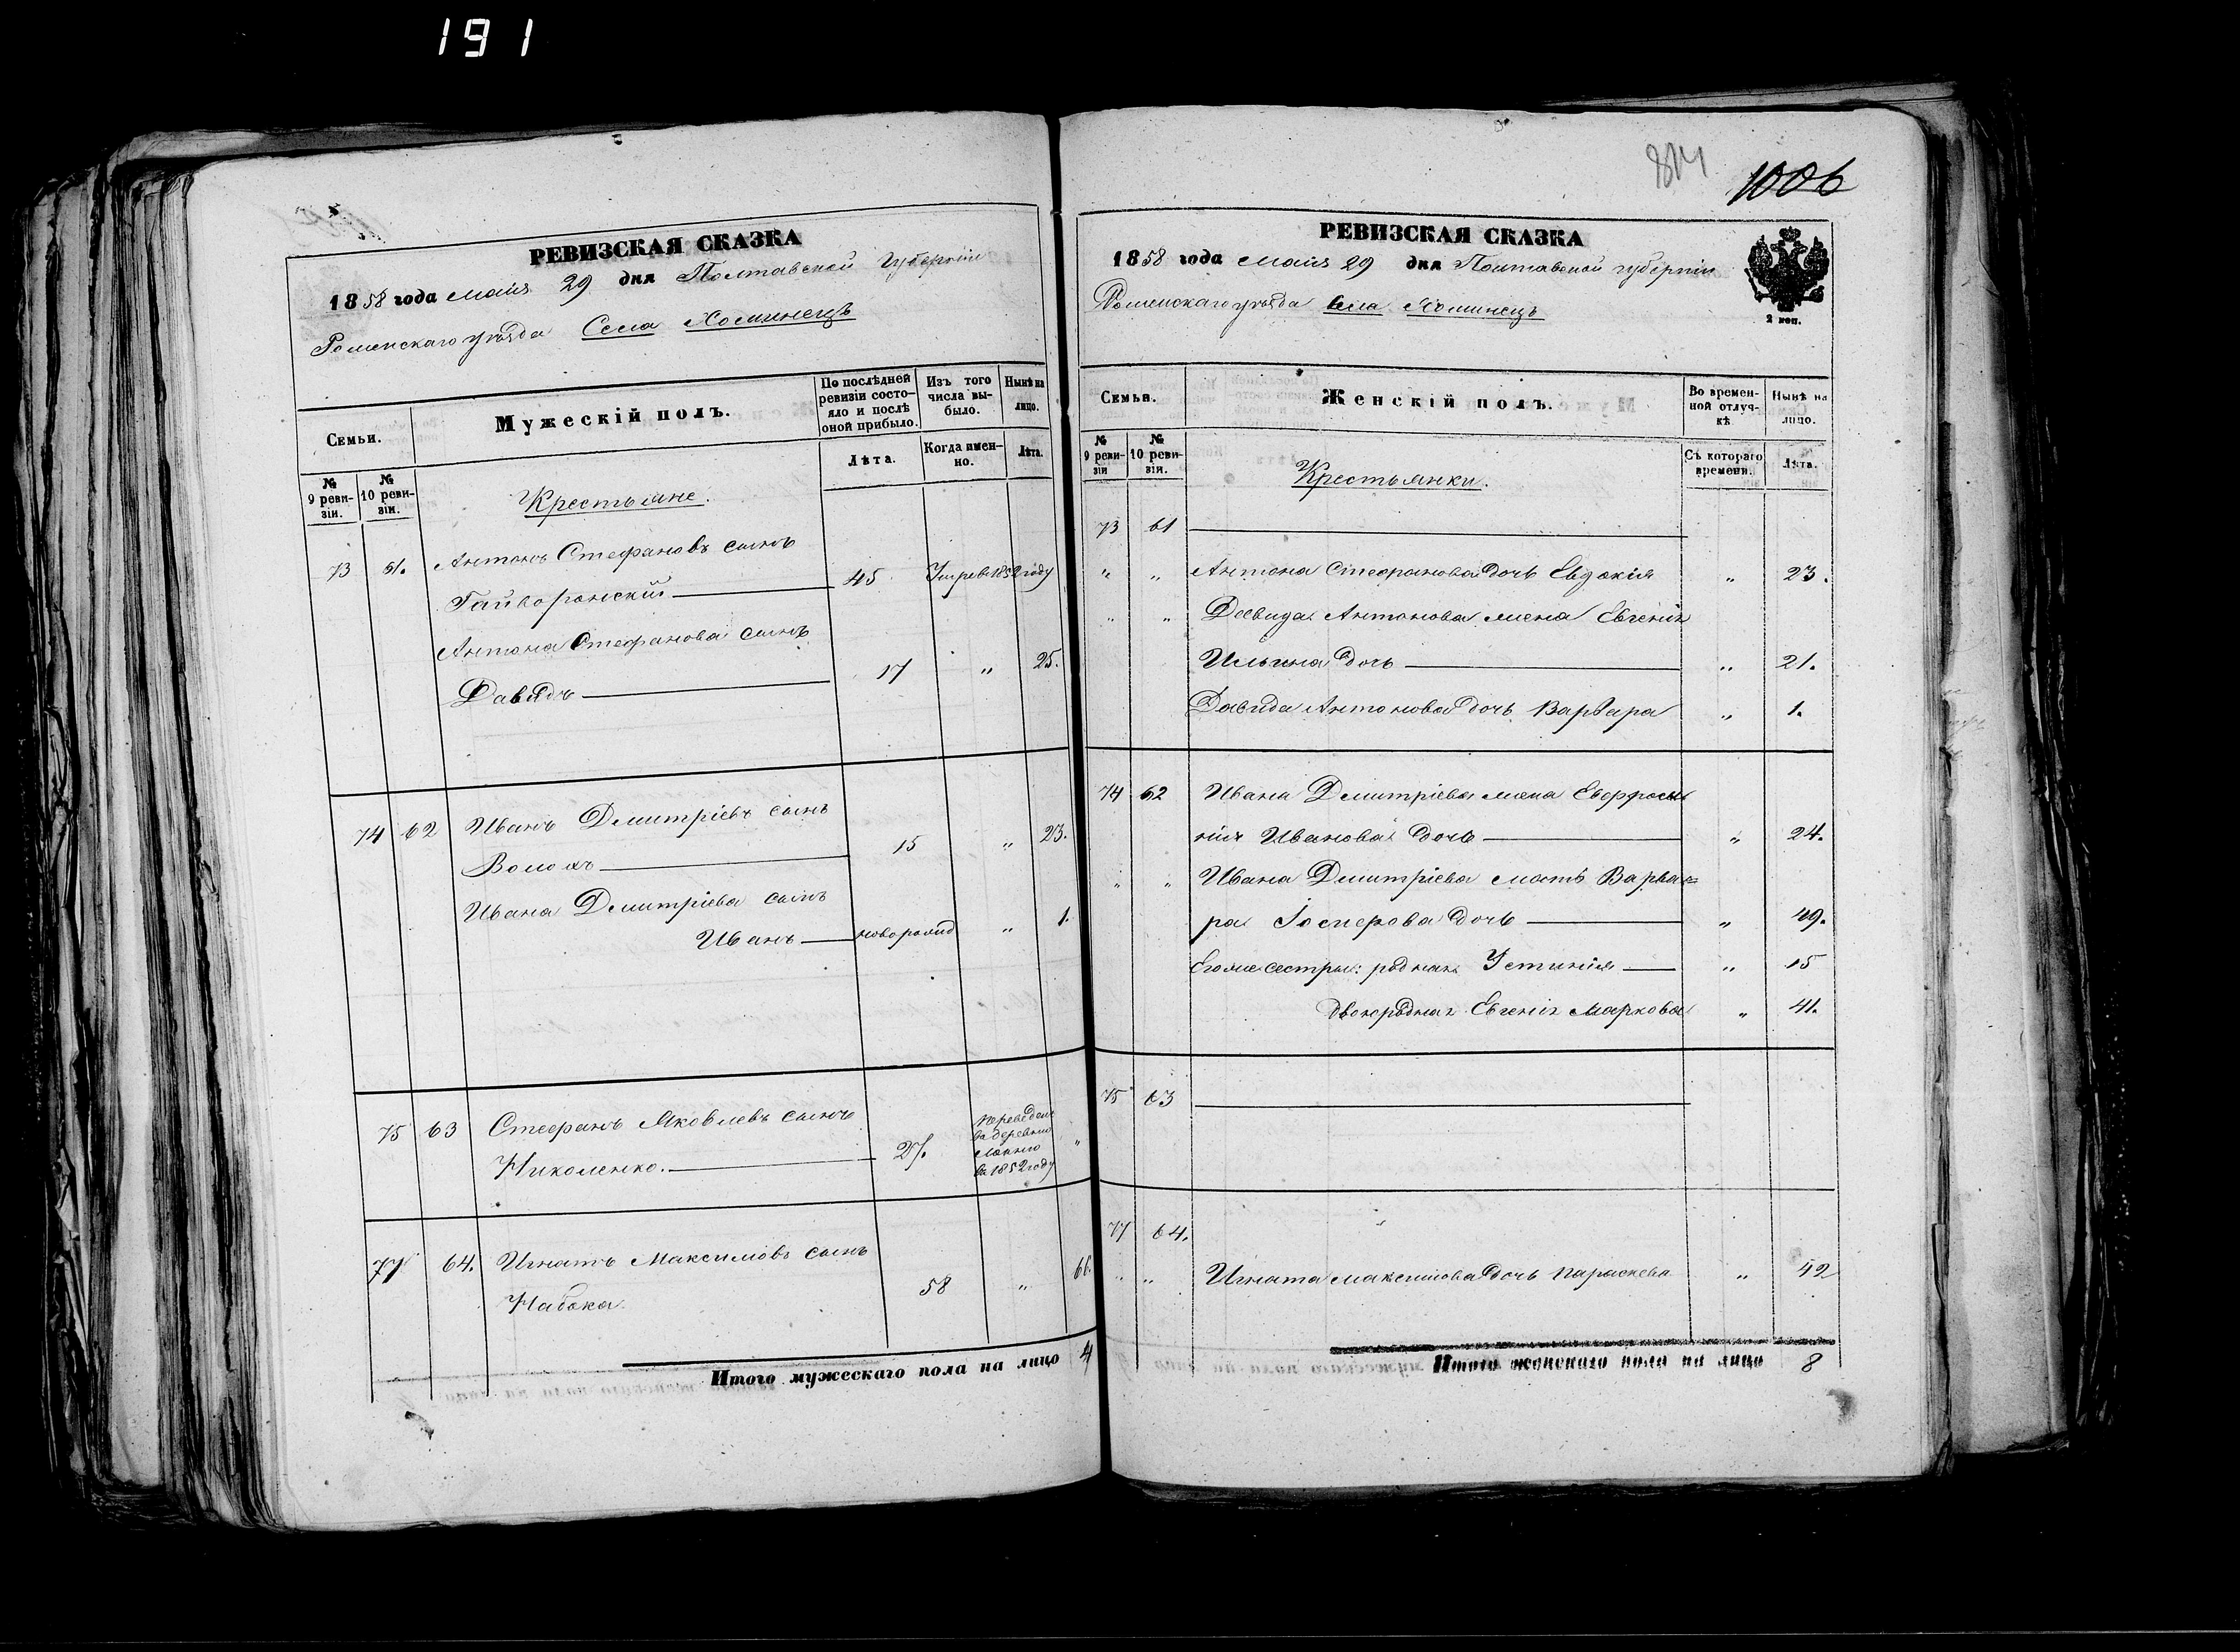 191
РЕВИЗСКАЯ СКАЗКА
1858 года мая 29 дня Полтавской губерніи
Роменскаго уѣзда Села Хоминецъ
Семьи.
Мужескій полъ.
По послѣдней ревизіи состояло и послѣ оной прибыло.
Изъ того числа выбыло.
Нынѣ на лицо.
№ 9 ревизіи.
№ 10 ревизіи.
Лѣта.
Когда именно.
Лѣта.
Крестьяне.
73 61. Антонъ Стефановъ сынъ
Гайворонскій 45 Умре въ 1852 году
Антона Стефанова сынъ
Давидъ 17 " 25.
74 62 Иванъ Дмитріевъ сынъ
Волохъ 15 " 23.
Ивана Дмитріева сынъ
Иванъ новорожд " 1.
75 63 Стефанъ Яковлевъ сынъ
Николенко. 27. переведенъ
въ деревню
въ 1852 году "
77 64. Игнатъ Максимовъ сынъ
Набока. 58 " 66.
Итого мужескаго пола на лицо 4
814
1006
РЕВИЗСКАЯ СКАЗКА
1858 года мая 29 дня Полтавской губерніи
Роменскаго уѣзда Села Хоминецъ
2 коп.
Семьи.
Женскій полъ.
Во временной отлучкѣ
Нынѣ на лицо.
№ 9 ревизіи
№ 10 ревизіи.
Съ котораго времени.
Лѣта.
Крестьянки.
73 61
" " Антона Стефанова дочь Евдокія " 23.
" " Давида Антонова жена Евгенія
Ильина дочь " 21.
Давида Антонова дочь Варвара " 1.
74 62 Ивана Дмитріева жена Евфроси
нія Иванова дочь " 24.
" " Ивана Дмитріева мать Варва=
ра Іосифова дочь " 49.
Его же сестры: родная Устинія " 15
двоюродная Евгенія Маркова " 41.
75 63
77 64.
" " Игната Максимова дочь Параскева " 42
Итого женскаго пола на лицо 8